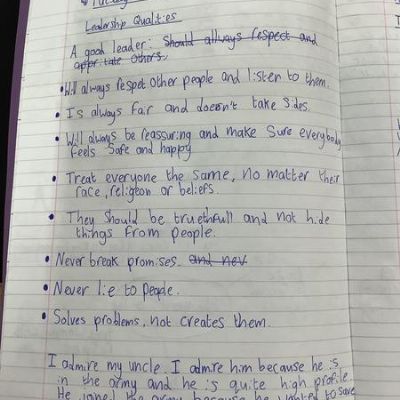 Leadership Qualities
A good leader: Should allways respect and
others.
• Will always respet other people and listen to them.
• Is always fair and doesn't take sides.
• Will always be reassuring and make sure everybody
feels safe and happy
• Treat everyone the same, no matter their
race, religeon or beliefs.
• They should be truethfull and not hide
things from people.
• Never break promises. and nev
• Never lie to people.
• Solves problems, not creates them.
I admire my uncle. I admire him because he is
in the army and he is quite high profile.
He joined the army because he wanted to save